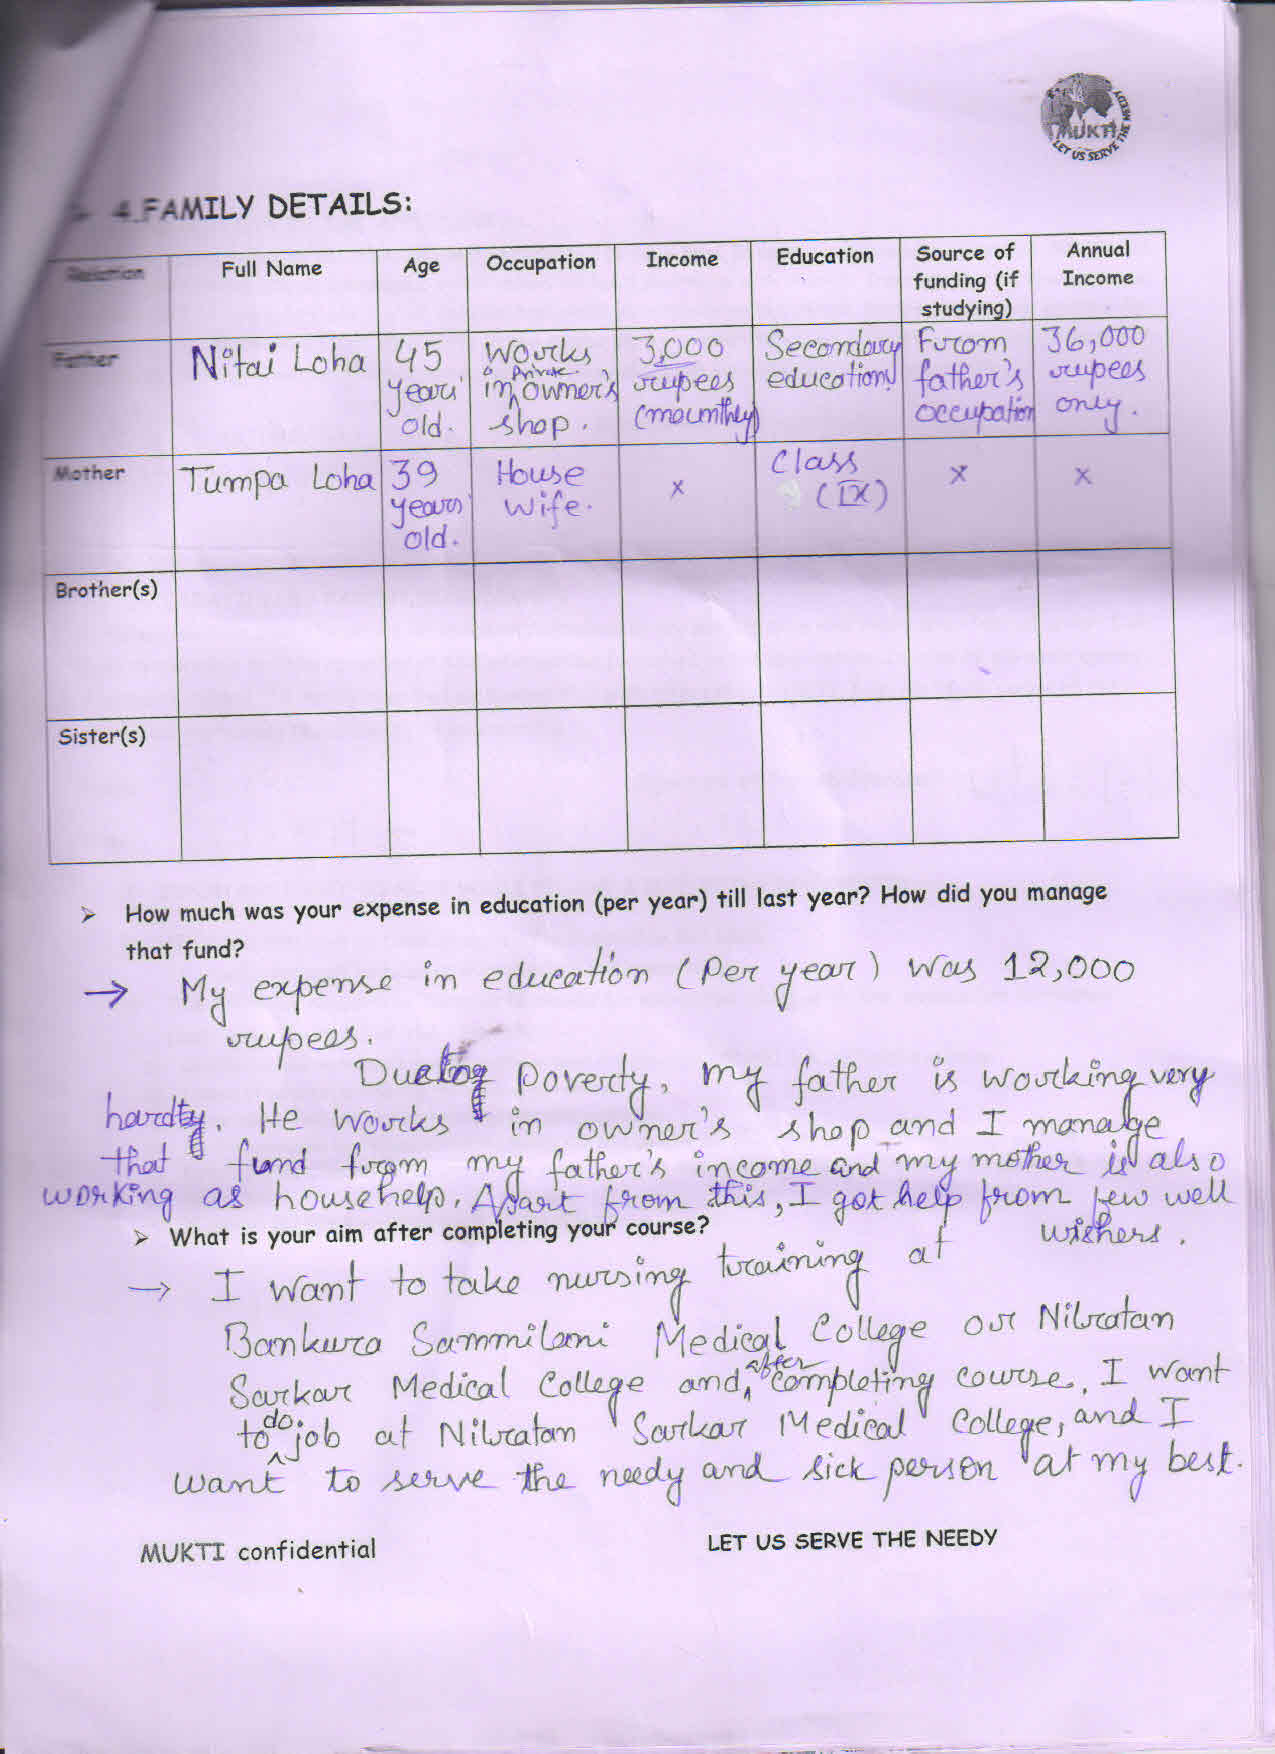 MUKTI
LET US SERVE THE NEEDY
4. FAMILY DETAILS:
Relation Full Name Age Occupation Income Education Source of funding (if studying) Annual Income
Father Nitai Loha 45 years old. Works in private owner's shop. 3,000 rupees (mounthly) Secondary education From father's occupation 36,000 rupees only.
Mother Tumpa Loha 39 years old. House wife. x Class (IX) x x
Brother(s)
Sister(s)
➢ How much was your expense in education (per year) till last year? How did you manage
that fund?
→ My expense in education (Per year) was 12,000
rupees.
Due to poverty, my father is working very
hard. He works in owner's shop and I manage
that fund from my father's income and my mother is also
working as househelp. Apart from this, I got help from few well
wishers.
➢ What is your aim after completing your course?
→ I want to take nursing training at
Bankura Sammilani Medical College or Nilratan
Sarkar Medical College and, after completing course, I want
to do job at Nilratan Sarkar Medical College, and I
want to serve the needy and sick person at my best.
MUKTI confidential LET US SERVE THE NEEDY